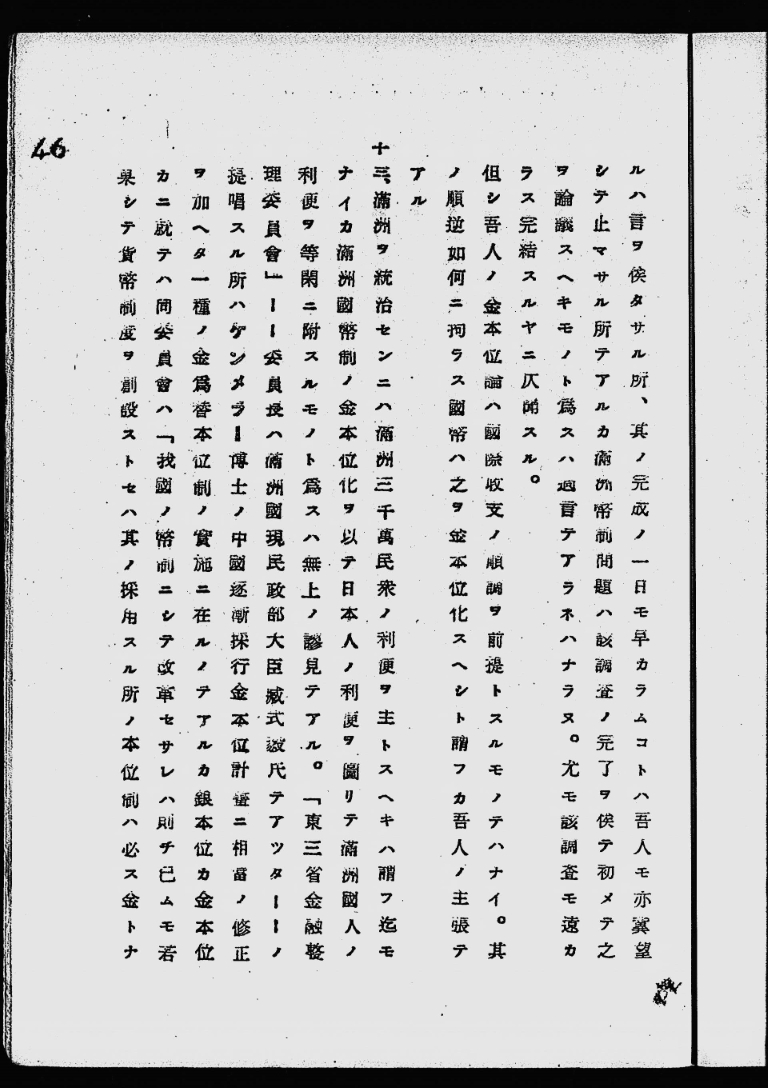 46
ルハ言ヲ俟タサル所、其ノ完成ノ一日モ早カラムコトハ吾人モ亦冀望
シテ止マサル所テアルカ滿洲幣制問題ハ該調査ノ完了ヲ俟テ初メテ之
ヲ論議スヘキモノト爲スハ過言テアラネハナラヌ。尤モ該調査モ遠カ
ラス完結スルヤニ仄聞スル。
但シ吾人ノ金本位論ハ國際收支ノ順調ヲ前提トスルモノテハナイ。其
ノ順逆如何ニ拘ラス國幣ハ之ヲ金本位化スヘシト謂フカ吾人ノ主張テ
アル
十三、滿洲ヲ統治センニハ滿洲三千萬民衆ノ利便ヲ主トスヘキハ謂フ迄モ
ナイカ滿洲國幣制ノ金本位化ヲ以テ日本人ノ利便ヲ圖リテ滿洲國人ノ
利便ヲ等閑ニ附スルモノト爲スハ無上ノ謬見テアル。「東三省金融整
理委員會」ーー委員長ハ滿洲國現民政部大臣臧式毅氏テアツターーノ
提唱スル所ハケンメラー博士ノ中國逐漸採行金本位計畫ニ相當ノ修正
ヲ加ヘタ一種ノ金爲替本位制ノ實施ニ在ルノテアルカ銀本位カ金本位
カニ就テハ同委員會ハ「我國ノ幣制ニシテ改革セサレハ則チ已ムモ若
果シテ貨幣制度ヲ創設ストセハ其ノ採用スル所ノ本位制ハ必ス金トナ